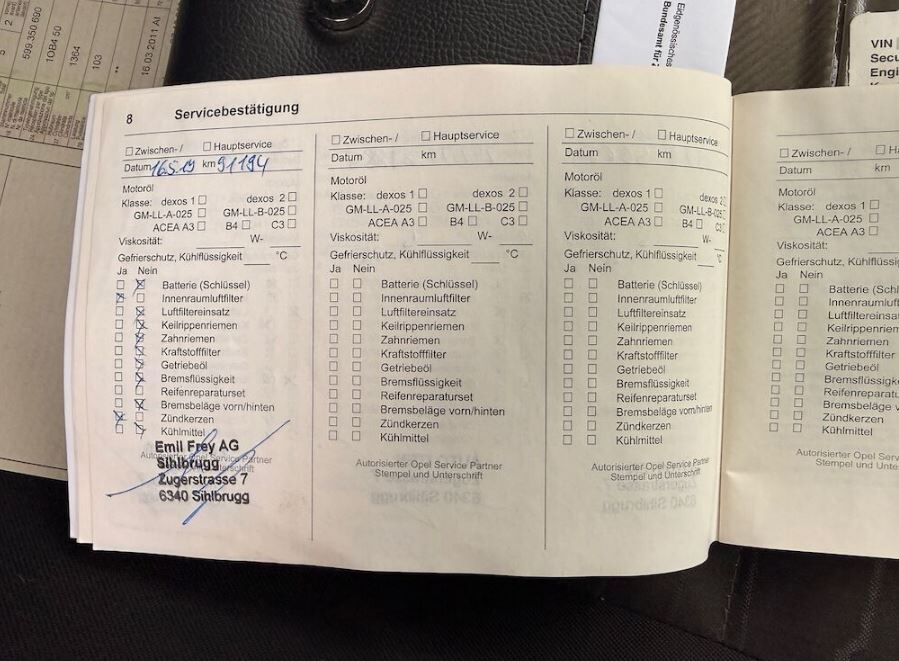 599.350.690
1OB4 50
1364
103
**
16.03.2011 A1
Eidgenössisches
Bundesamt für
VIN
Secu
Engi
8 Servicebestätigung
Zwischen-/ Hauptservice
Datum 16.5.19 km 91194
Motoröl
Klasse: dexos 1 dexos 2
GM-LL-A-025 GM-LL-B-025
ACEA A3 B4 C3
Viskosität: W-
Gefrierschutz, Kühlflüssigkeit °C
Ja Nein
Batterie (Schlüssel)
Innenraumluftfilter
Luftfiltereinsatz
Keilrippenriemen
Zahnriemen
Kraftstofffilter
Getriebeöl
Bremsflüssigkeit
Reifenreparaturset
Bremsbeläge vorn/hinten
Zündkerzen
Kühlmittel
Autorisierter Opel Service Partner
Stempel und Unterschrift
Emil Frey AG
Sihlbrugg
Zugerstrasse 7
6340 Sihlbrugg
Zwischen-/ Hauptservice
Datum km
Motoröl
Klasse: dexos 1 dexos 2
GM-LL-A-025 GM-LL-B-025
ACEA A3 B4 C3
Viskosität: W-
Gefrierschutz, Kühlflüssigkeit °C
Ja Nein
Batterie (Schlüssel)
Innenraumluftfilter
Luftfiltereinsatz
Keilrippenriemen
Zahnriemen
Kraftstofffilter
Getriebeöl
Bremsflüssigkeit
Reifenreparaturset
Bremsbeläge vorn/hinten
Zündkerzen
Kühlmittel
Autorisierter Opel Service Partner
Stempel und Unterschrift
Zwischen-/ Hauptservice
Datum km
Motoröl
Klasse: dexos 1 dexos 2
GM-LL-A-025 GM-LL-B-025
ACEA A3 B4 C3
Viskosität: W-
Gefrierschutz, Kühlflüssigkeit °C
Ja Nein
Batterie (Schlüssel)
Innenraumluftfilter
Luftfiltereinsatz
Keilrippenriemen
Zahnriemen
Kraftstofffilter
Getriebeöl
Bremsflüssigkeit
Reifenreparaturset
Bremsbeläge vorn/hinten
Zündkerzen
Kühlmittel
Autorisierter Opel Service Partner
Stempel und Unterschrift
Zwischen-/ Ha
Datum km
Motoröl
Klasse: dexos 1
GM-LL-A-025
ACEA A3
Viskosität:
Gefrierschutz, Kühlflüssig
Ja Nein
Batterie (Schlüs
Innenraumluftf
Luftfiltereinsat
Keilrippenriem
Zahnriemen
Kraftstofffilter
Getriebeöl
Bremsflüssigk
Reifenreparatu
Bremsbeläge
Zündkerzen
Kühlmittel
Autorisierter Opel Ser
Stempel und Unters